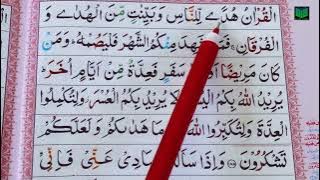 الْقُرْاٰنُ هُدًے لِّلنَّاسِ وَبَيِّنٰتٍ مِّنَ الْهُدٰے وَ
الْفُرْقَانِ ۚ مِنْكُمُ الشَّهْرَ فَلْيَصُمْهُ ؕ وَمَنْ
كَانَ مَرِيْضًا سَفَرٍ فَعِدَّةٌ مِّنْ اَيَّامٍ اُخَرَ ؕ
يُرِيْدُ اللّٰهُ بِكُمُ الْيُ يُرِيْدُ بِكُمُ الْعُسْرَ ؗ وَلِتُكْمِلُوا
الْعِدَّةَ وَلِتُكَبِّرُوا اللّٰهَ مَا هَدٰىكُمْ وَلَعَلَّكُمْ
تَشْكُرُوْنَ ۝١٨٥ وَاِذَا سَاَلَ بَادِيْ عَنِّيْ فَاِنِّيْ